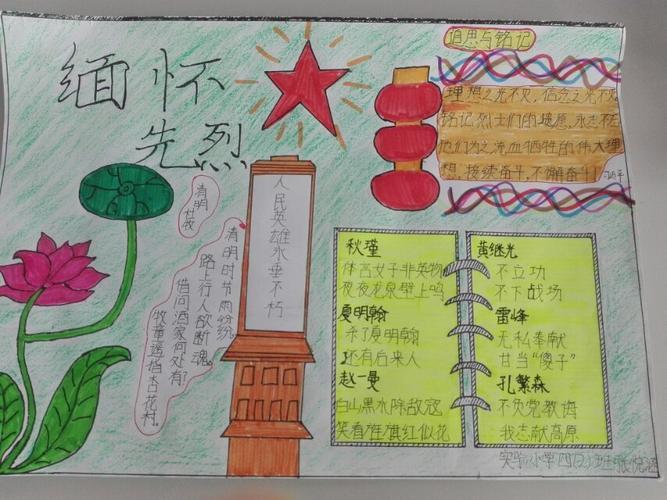 缅怀
先烈
追思与铭记
理想之光不灭,信念之光不灭
铭记烈士们的遗愿,永志不忘
他们为之流血牺牲的伟大理
想,接续奋斗,不懈奋斗!
清明
清明时节雨纷纷
路上行人欲断魂。
借问酒家何处有?
牧童遥指杏花村。
人民英雄永垂不朽
秋瑾
休言女子非英物
夜夜龙泉壁上鸣
夏明翰
杀了夏明翰
还有后来人
赵一曼
白山黑水除敌寇
笑看旌旗红似花
黄继光
不立功
不下战场
雷峰
无私奉献
甘当“傻子”
孔繁森
不负党教诲
我志献高原
实验小学四(2)班